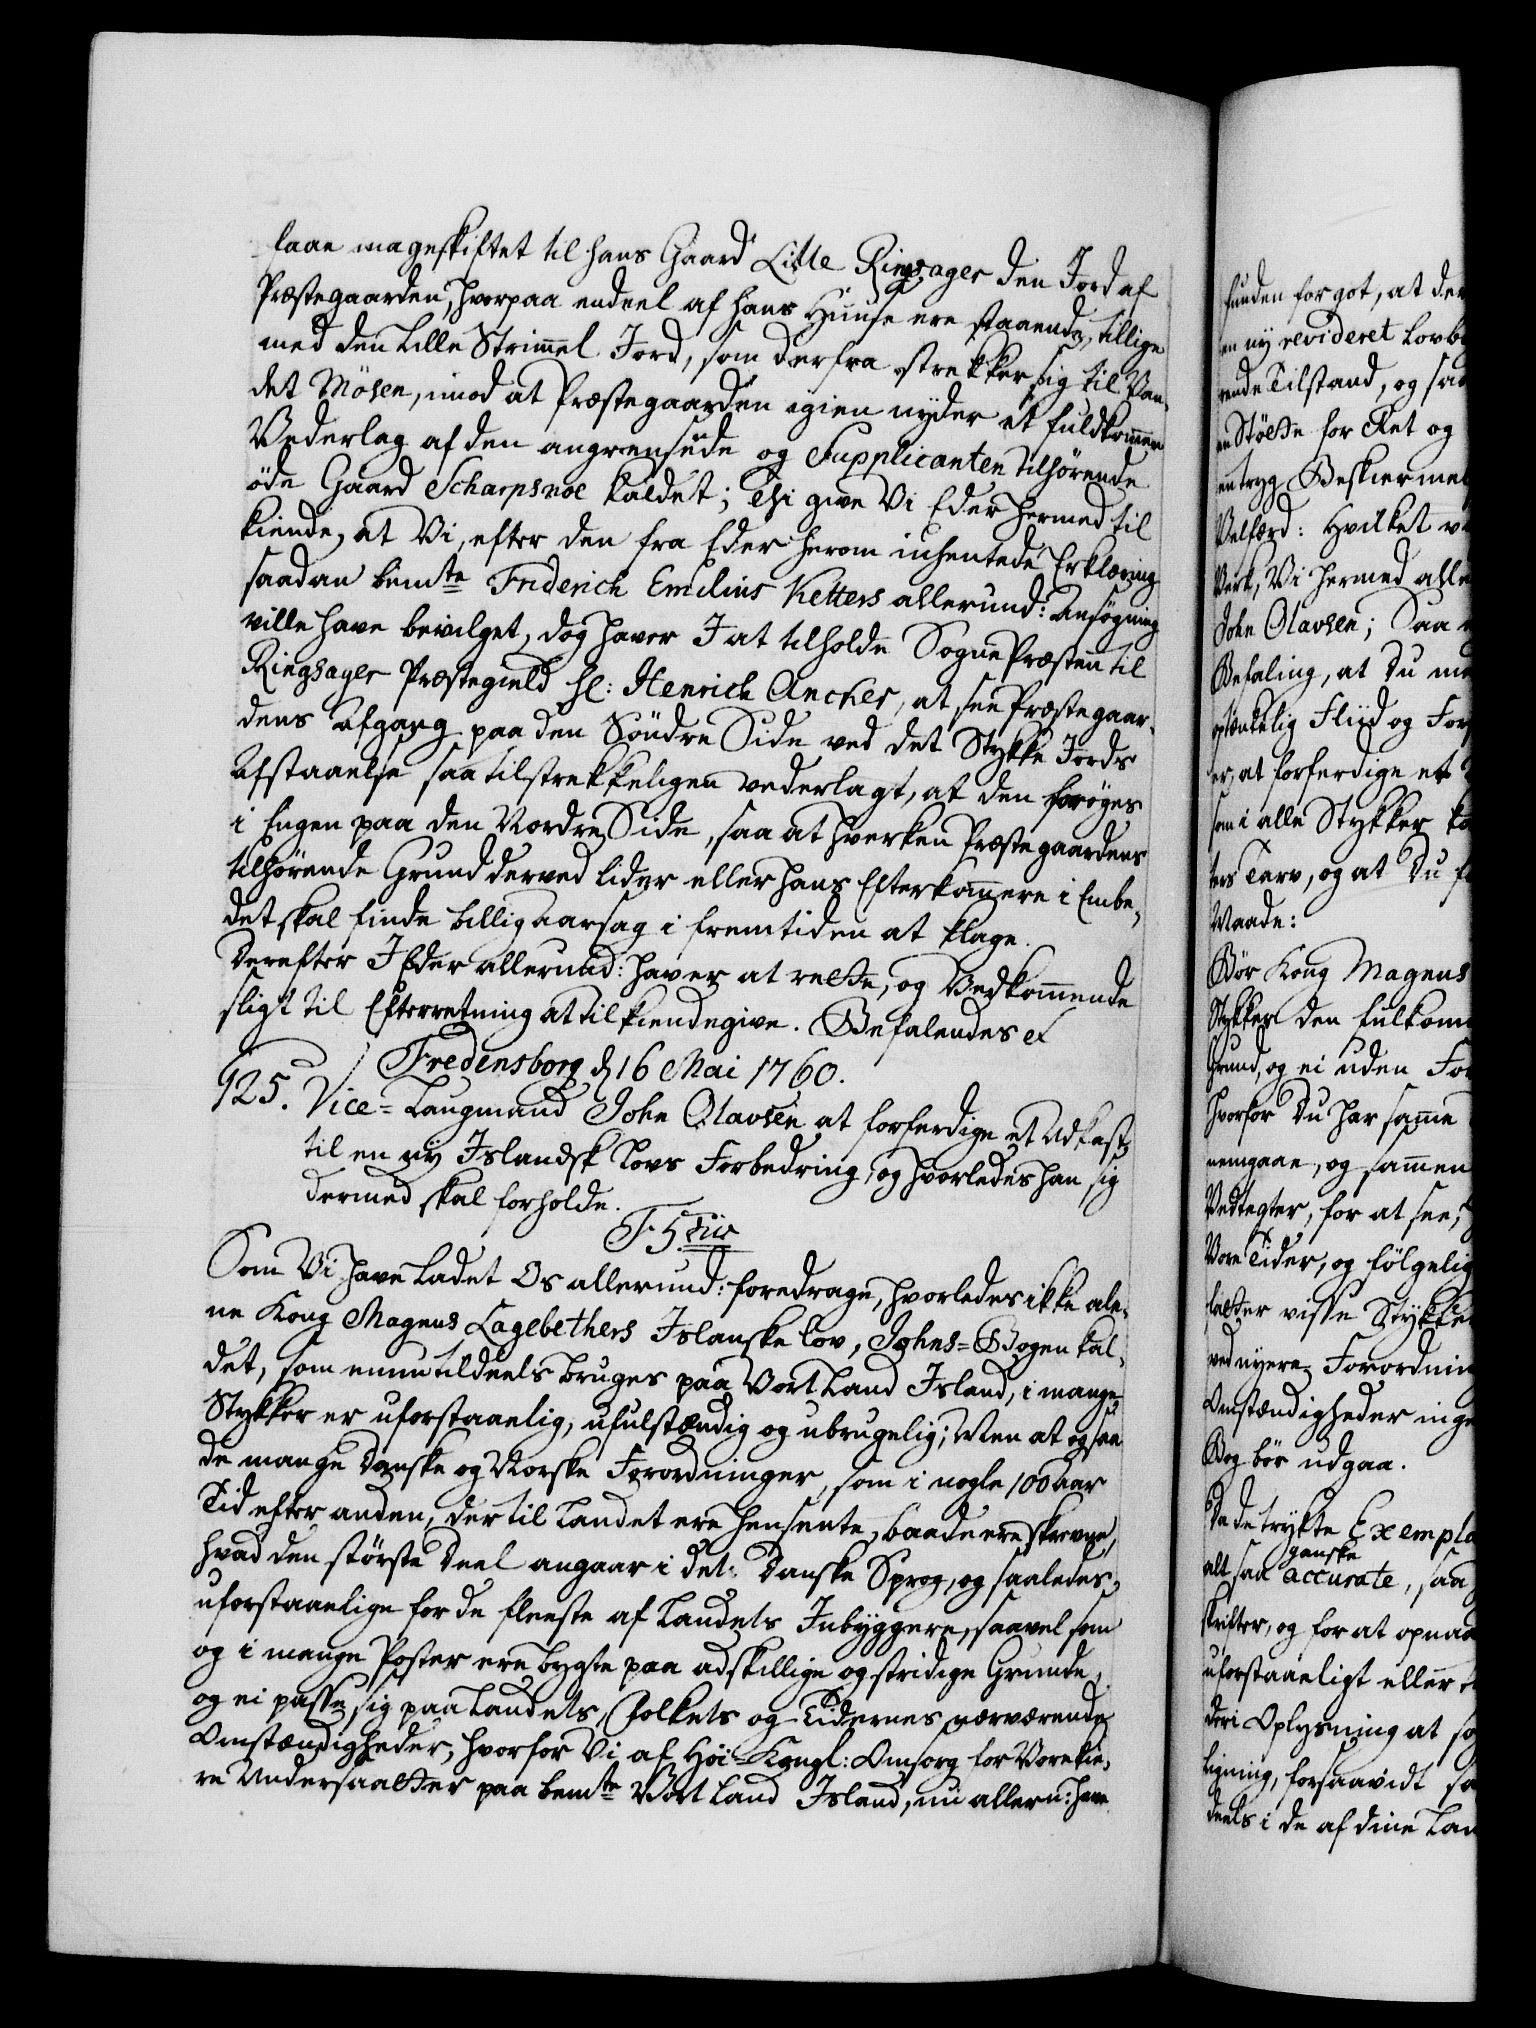 faae mageskiftet til hans Gaard Lille Ringsager den Jord af
Præstegaarden, hvorpaa endeel af hans Huuse ere staaende, tillige
med den lille Strimmel Jord, som derfra strekker sig til Van-
det Mösen, imod at Præstegaarden igien nyder et fuldkommen
Vederlag af den angrensende og Supplicanten tilhörende
öde Gaard Scharpsnoe kaldet; Thi give Vi Eder hermed til
kiende, at Vi, efter den fra Eder herom inhentede Erklæring
saadan bemte Friderich Emilius Ketters allerund: Ansøgning
ville have bevilget, dog haver I at tilholde SognePræsten til
Ringsager Præstegield Hr: Henrich Ancher, at see Præstegaar-
dens Afgang paa den Söndre Side ved det Stykke Jords
Afstaaelse saa tilstrekkeligen vederlagt, at den forøges
i Engen paa den Nordre Side, saa at hverken Præstegaardens
tilhörende Grund derved lider eller hans Efterkommere i Embe-
det skal finde billig aarsag i fremtiden at klage.
Derefter I Eder allerund: haver at rette, og Vedkommende
sligt til Efterretning at tilkiendegive. Befalendes etc
Fredensborg d 16 Mai 1760.
125. Vice-Laugmand John Olavsen at forferdige et Udkast
til en ny Islandsk Lovs Forbedring, og hvorledes han sig
dermed skal forholde.
F. 5 tus
Som Vi have ladet Os allerund: foredrage, hvorledes ikke ale-
ne Kong Magnus Lagebethers Islanske lov, Johns-Bogen kal-
det, som ennu tildeels bruges paa Vort Land Island, i mange
Stykker er uforstaaelig, ufulstændig og ubrugelig; Men at og saa
de mange Danske og Norske Forordninger, som i nogle 100 Aar
Tid efter anden, der til Landet ere hensente, baade ere skrevne,
hvad den störste Deel angaar i det Danske Sprog, og saaledes
uforstaaelige for de fleeste af Landets Inbyggere, saavel som
og i mange Poster ere bygte paa adskillige og stridige Grunde,
og ei passe sig paa Landets, Folkets og Tidernes nærværende
Omstændigheder, hvorfor Vi af Höi-Kongl: Omsorg for Vore kie-
re Undersaatter paa bemte Vort Land Island, nu allern: have
funden for got, at der
en ny revideret Lovbo
rende Tilstand, og saa
en Stötte for Ret og
en tryg Beskiermel
Velfærd: Hvilket v
Verk, Vi hermed alle
John Olavsen; Saa
Befaling, at Du me
optænkelig Fliid og For
der, at forferdige et
som i alle Stykker k
ters Tarv, og at Du f
Maade:
Bör Kong Magnus
Stykker den fulkom
Grund, og ei uden For
hvorfor Du har samme
nemgaae, og sammen
Vedtegter, for at see,
Vore Tider, og fölgelig
fatter visse Stykke
ved nyere Forordnin
Omstændigheder inge
Bog bör udgaa.
Da de trykte Exempla
ganske
alt saa accurate, saa
skrifter, og for at opnaa
uforstaaeligt eller
deri Oplysning at sö
ligning, forsaavidt sa
deels i de af dine Lan